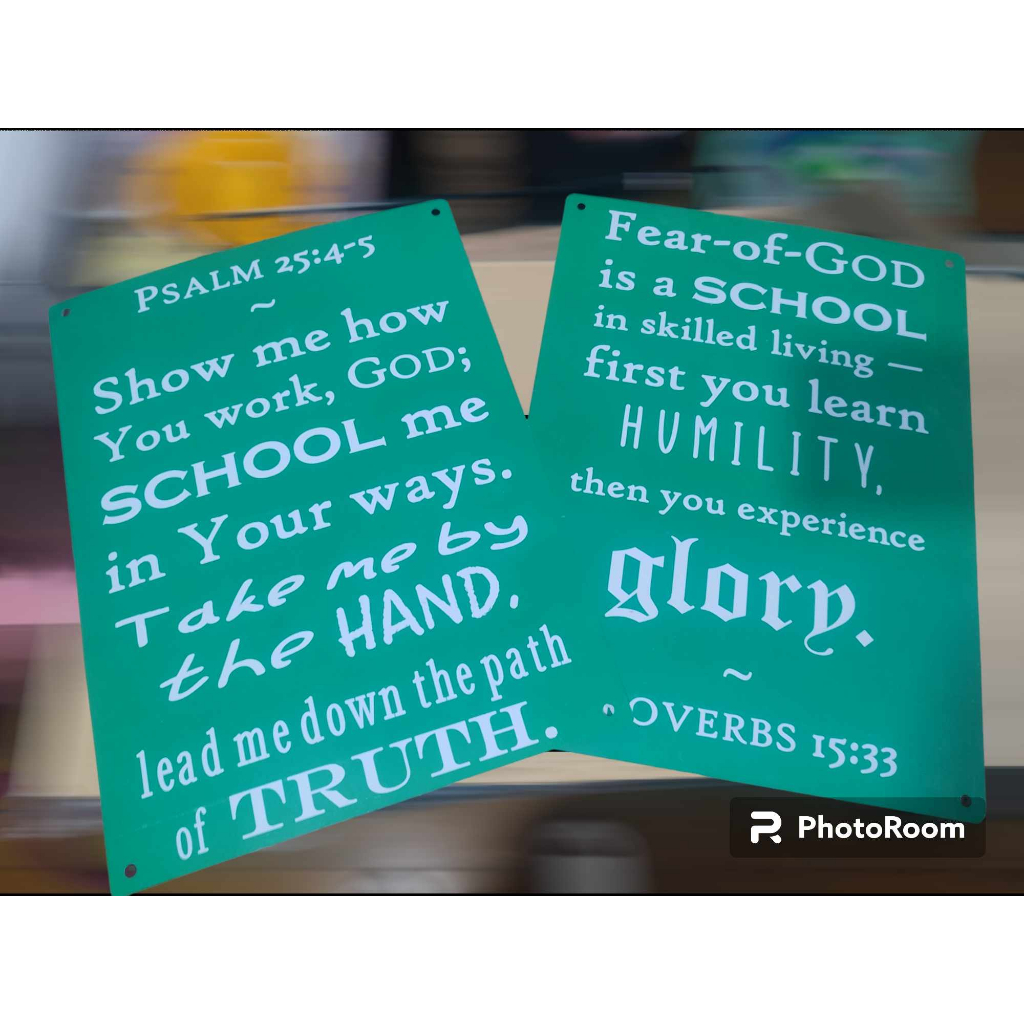 PSALM 25:4-5
~
Show me how
You work, GOD;
SCHOOL me
in Your ways.
Take me by
the HAND.
lead me down the path
of TRUTH.
Fear-of-GOD
is a SCHOOL
in skilled living —
first you learn
HUMILITY,
then you experience
glory.
~
OVERBS 15:33
PhotoRoom